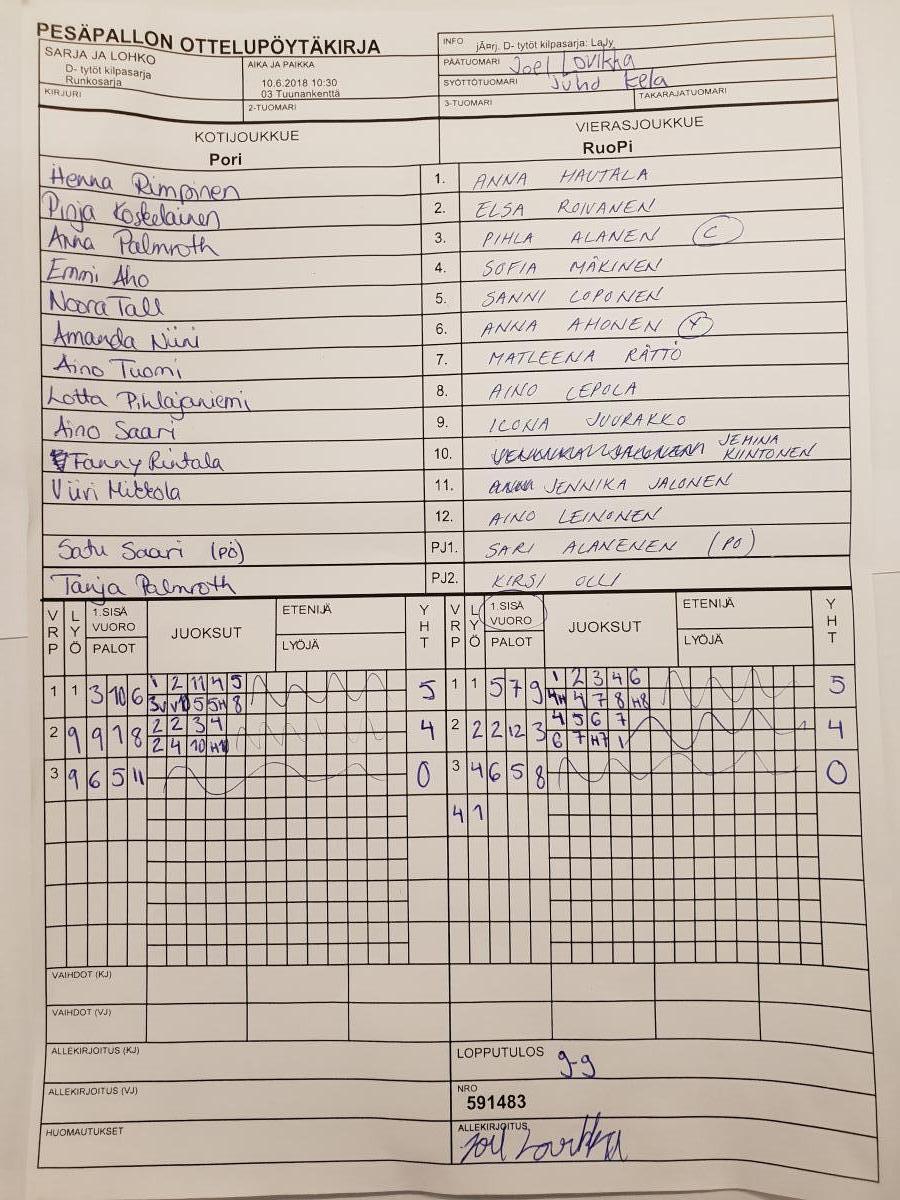 PESÄPALLON OTTELUPÖYTÄKIRJA
SARJA JA LOHKO
D- tytöt kilpasarja
Runkosarja
AIKA JA PAIKKA
10.6.2018 10:30
03 Tuunankenttä
KIRJURI
2-TUOMARI
INFO jÃ¤rj. D- tytöt kilpasarja: LaJy
PÄÄTUOMARI Joel Lovikka
SYÖTTÖTUOMARI Juho Kela
3-TUOMARI TAKARAJATUOMARI
KOTIJOUKKUE VIERASJOUKKUE
Pori RuoPi
Henna Rimpinen 1. ANNA HAUTALA
Pinja Koskelainen 2. ELSA ROIVANEN
Anna Palmroth 3. PIHLA ALANEN C
Emmi Aho 4. SOFIA MÄKINEN
Noora Tall 5. SANNI LOPONEN
Amanda Niini 6. ANNA AHONEN
Aino Tuomi 7. MATLEENA RÄTTÖ
Lotta Pihlajaniemi 8. AINO LEPOLA
Aino Saari 9. ILONA JUURAKKO
Fanny Rintala 10. JEMINA KIINTONEN
Viiri Mikkola 11. JENNIKA JALONEN
12. AINO LEINONEN
Satu Saari (PÖ) PJ1. SARI ALANENEN (PÖ)
Tanja Palmroth PJ2. KIRSI OLLI
VRP LYÖ 1.SISÄ VUORO PALOT JUOKSUT ETENIJÄ LYÖJÄ YHT VRP LYÖ 1.SISÄ VUORO PALOT JUOKSUT ETENIJÄ LYÖJÄ YHT
1 1 3 10 6 1 2 11 4 5 5 1 1 5 7 9 1 2 3 4 6 5
3V V10 5 5H 8 4H 4 7 8 H8
2 9 9 1 8 2 2 3 4 4 2 2 2 12 3 4 5 6 7 4
2 4 10 H10 6 7 H7 1
3 9 6 5 11 0 3 4 6 5 8 0
4 1
VAIHDOT (KJ)
VAIHDOT (VJ)
ALLEKIRJOITUS (KJ) LOPPUTULOS 9-9
ALLEKIRJOITUS (VJ) NRO
591483
HUOMAUTUKSET ALLEKIRJOITUS
Joel Lovikka